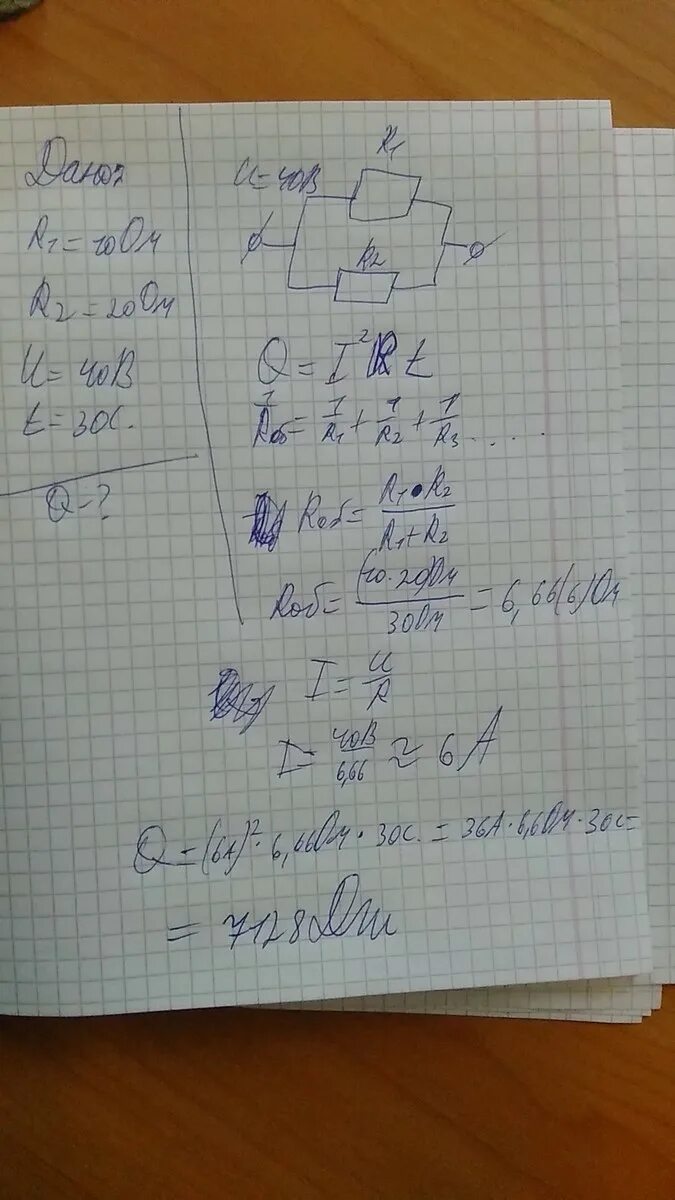 Дано:
R1 = 10 Ом
R2 = 20 Ом
U = 40В
t = 30с.
Q - ?
R1
U = 40В
R2
Q = I² R t
1/Rоб = 1/R1 + 1/R2 + 1/R3 ....
Rоб = R1 • R2 / R1 + R2
Rоб = (10 · 20)Ом / 30Ом = 6,66(6)Ом
I = U / R
I = 40В / 6,66 ≈ 6 А
Q = (6А)² · 6,66Ом · 30с. = 36А · 6,6Ом · 30с =
= 7128 Дж